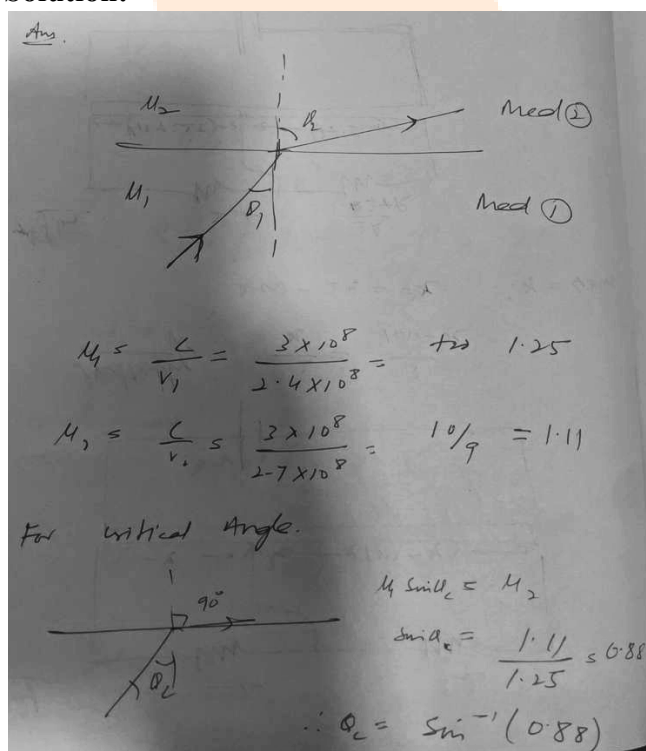 Solution:
Ans.
μ₂
θ₂
Med ②
μ₁
θ₁
Med ①
μ₁ = C/V₁ = 3 × 10⁸ / 2.4 × 10⁸ = 1.25
μ₂ = C/V₂ = 3 × 10⁸ / 2.7 × 10⁸ = 10/9 = 1.11
For critical Angle.
90°
θc
μ₁ sinθc = μ₂
sinθc = 1.11 / 1.25 = 0.88
∴ θc = Sin⁻¹ (0.88)